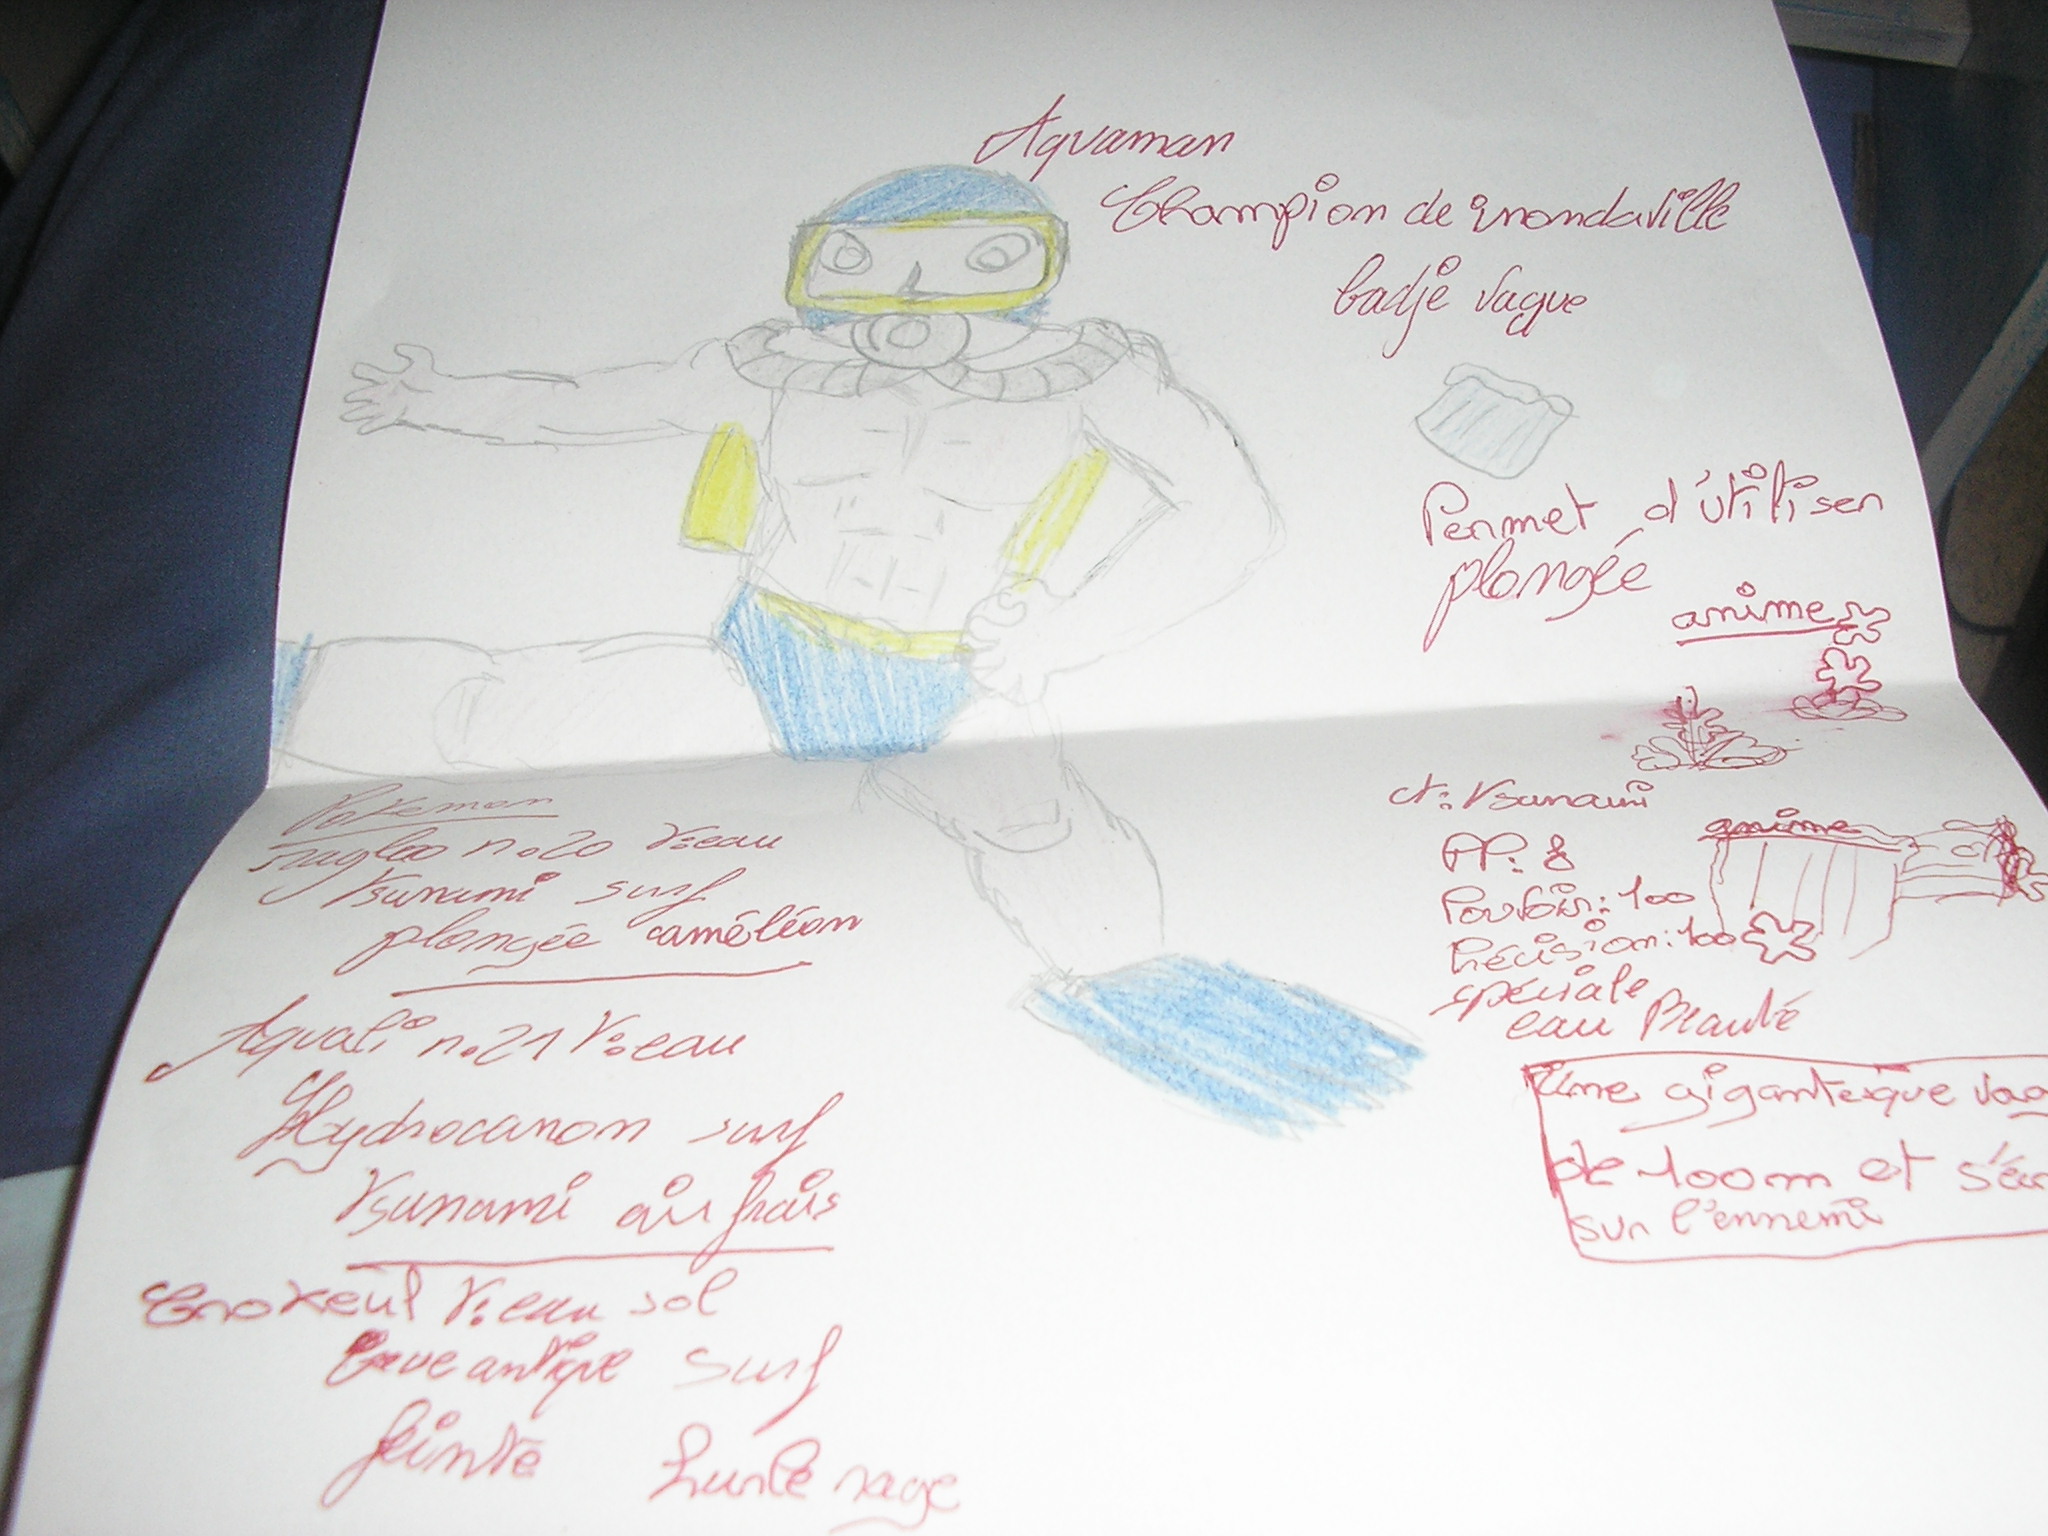 Aquaman
Champion de inondaville
badje vague
Permet d'utiliser
plongée
anime
Pokemon
n:20 T:eau
Tsunami surf
plongée caméléon
Aquali n:21 T:eau
Hydrocanon surf
Tsunami air frais
Crokeul T:eau sol
antique surf
feinte hurle rage
ct: Tsunami
anime
PP: 8
Pouvoir: 100
Précision: 100
spéciale
eau Beauté
une giganteique vag
de 100m et s'éc
sur l'ennemi